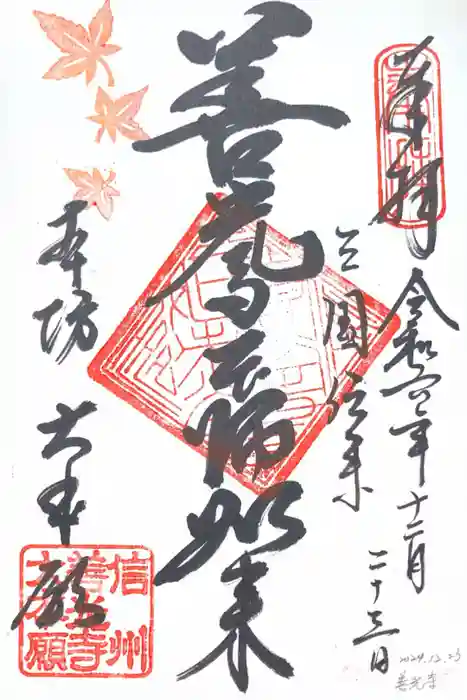 奉拝
令和六年十二月二十三日
三國伝来
善
如来
本坊
大本願
信州
善光寺
大本願
2024.12.23
善光寺